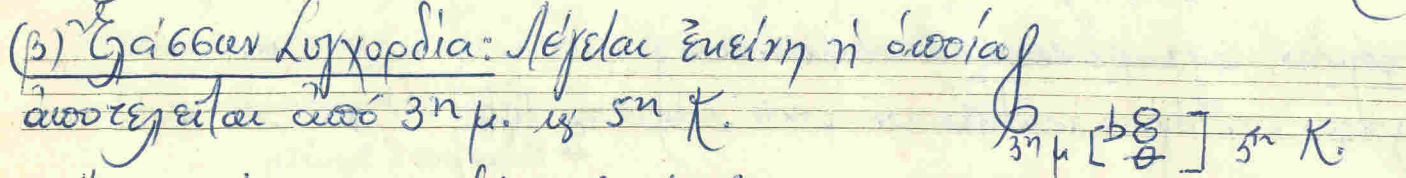 (β) Ἐλάσσων Συγχορδία: Λέγεται ἐκείνη ἡ ὁποία
ἀποτελεῖται ἀπό 3η μ. κ 5η Κ.
3η μ [♭] 5η Κ.